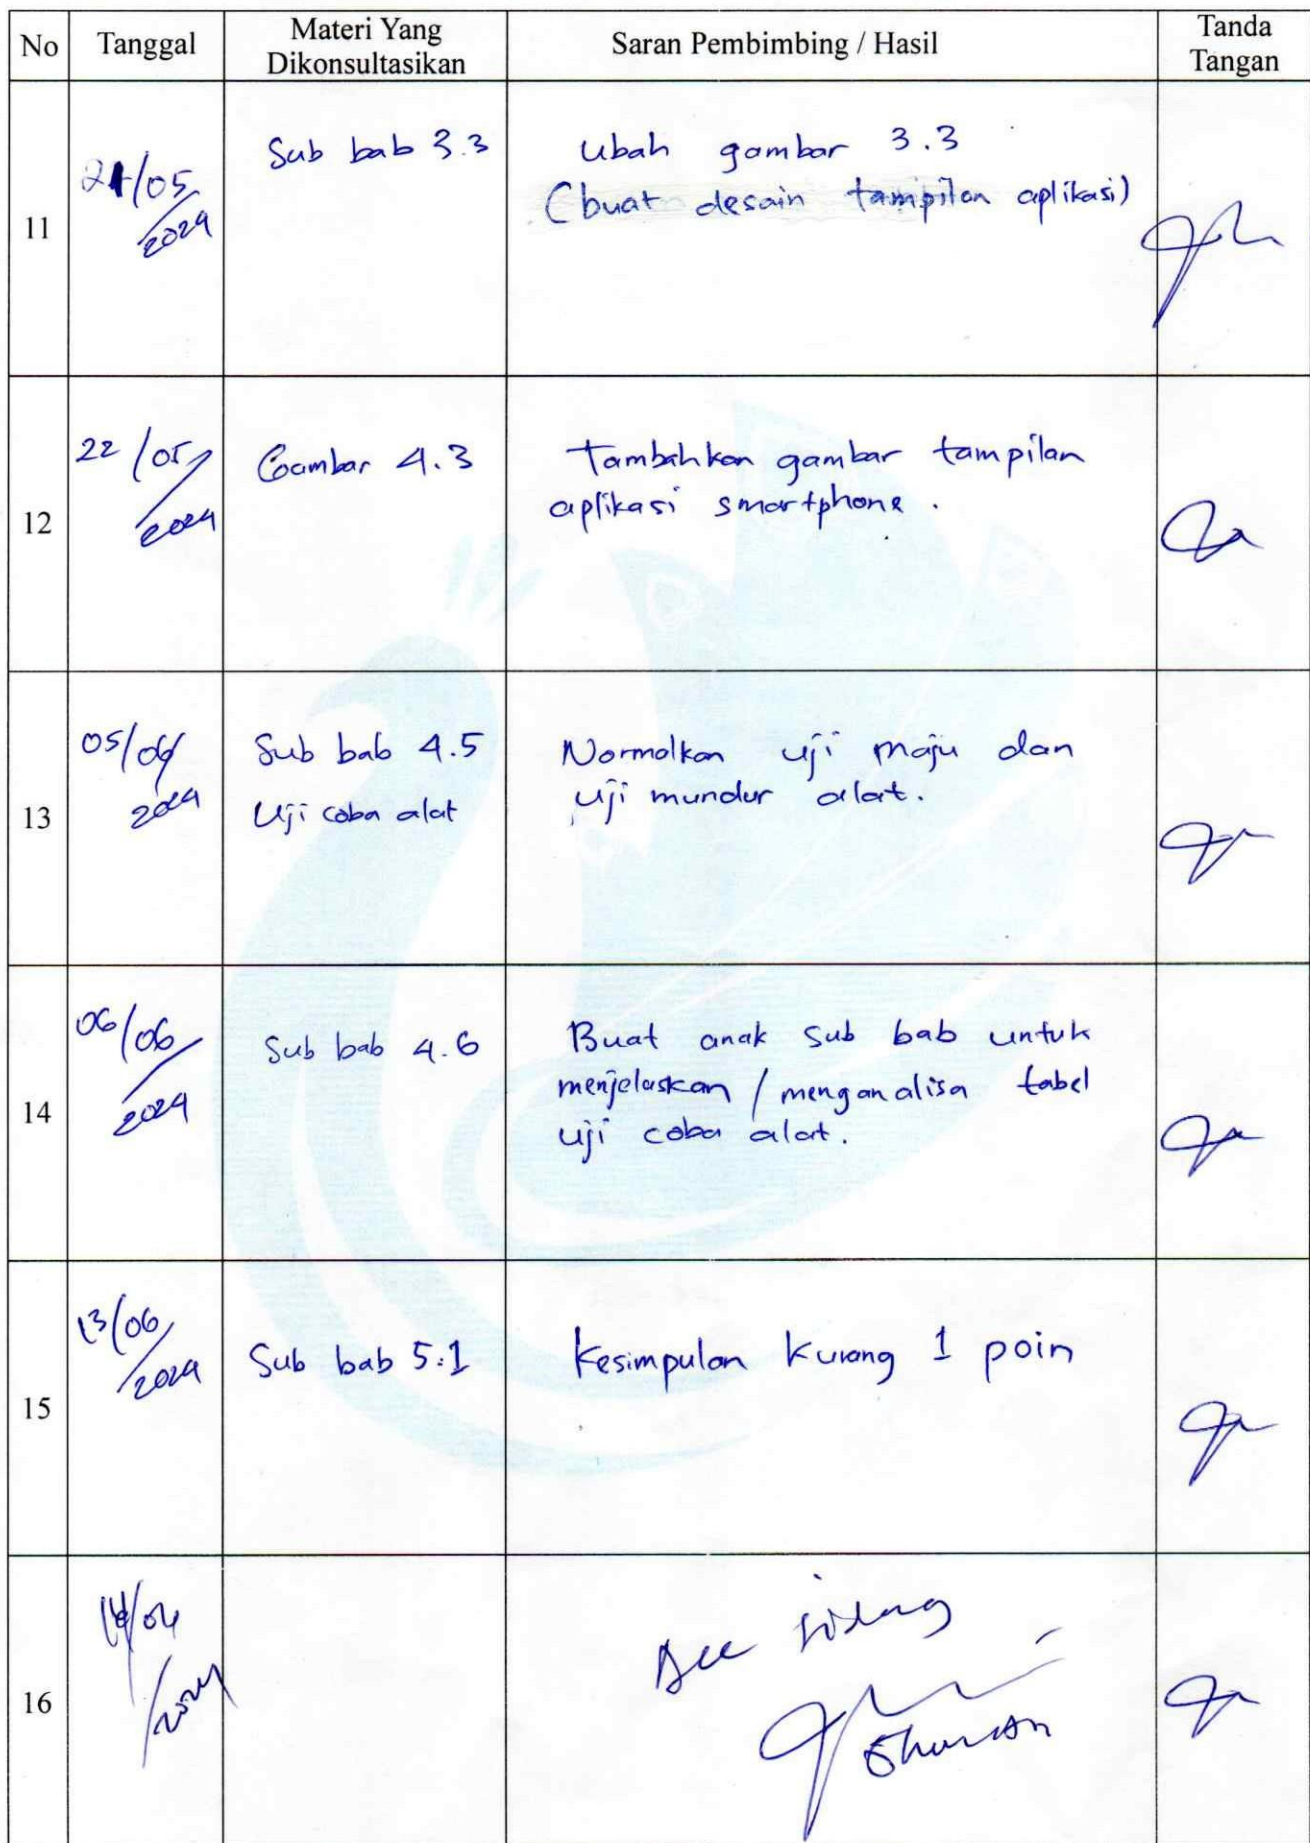 No Tanggal Materi Yang Dikonsultasikan Saran Pembimbing / Hasil Tanda Tangan
11 21/05/2024 Sub bab 3.3 Ubah gambar 3.3
(buat desain tampilan aplikasi)
12 22/05/2024 Gambar 4.3 Tambahkan gambar tampilan
aplikasi smartphone.
13 05/06/2024 Sub bab 4.5 Normalkan uji maju dan
Uji coba alat uji mundur alat.
14 06/06/2024 Sub bab 4.6 Buat anak sub bab untuk
menjelaskan / menganalisa tabel
uji coba alat.
15 13/06/2024 Sub bab 5.1 Kesimpulan kurang 1 poin
16 Acc sidang